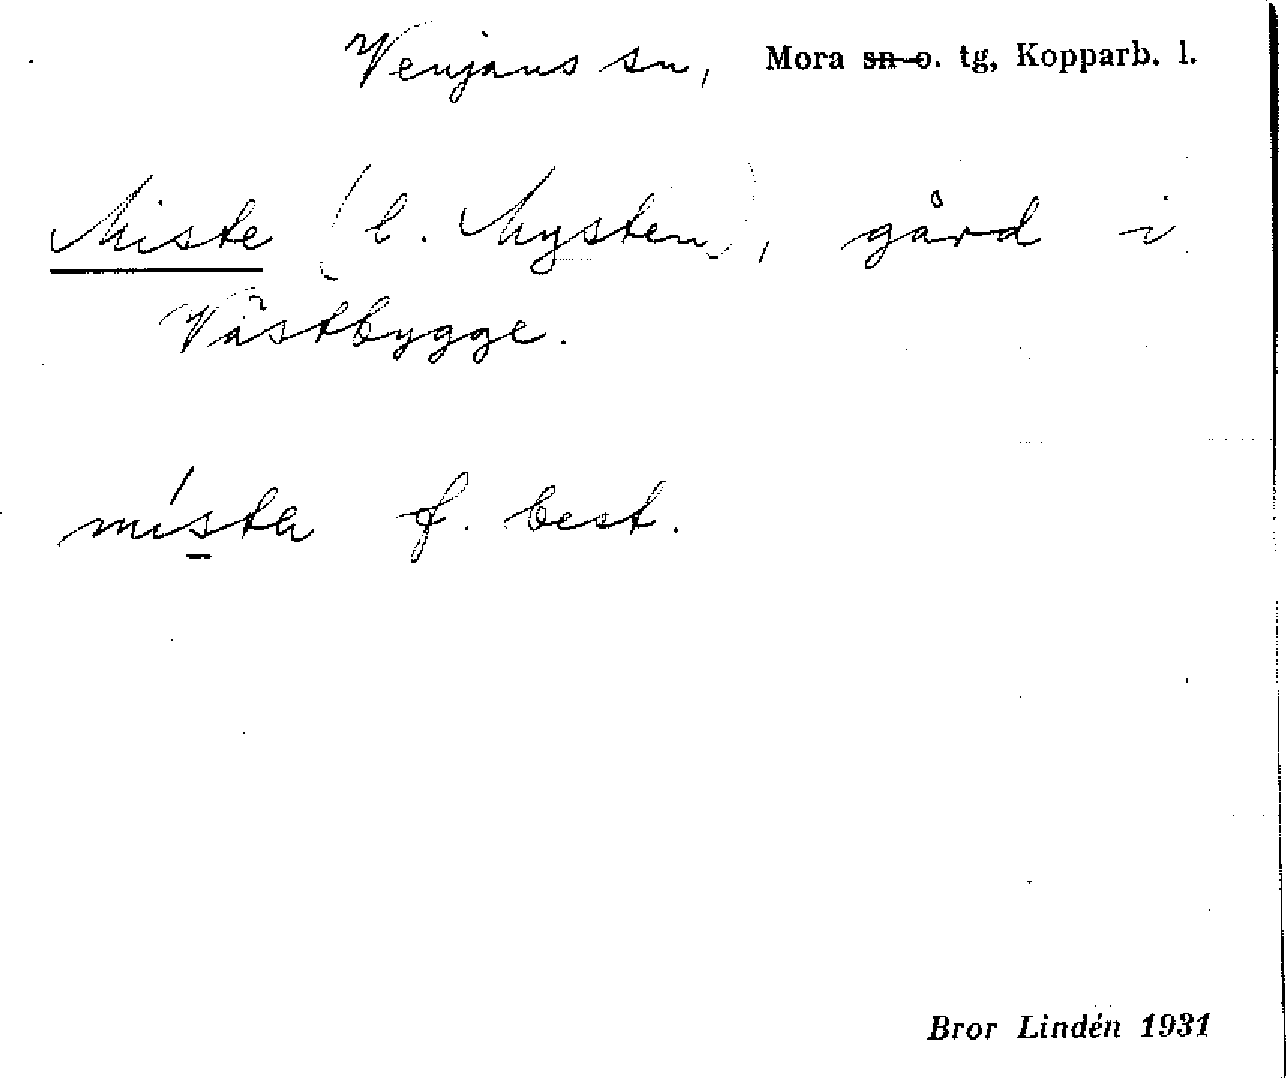 Venjans sn, Mora sn o. tg, Kopparb. l.
Miste (l. Mysten), gård i
Västbygge.
místa f. best.
Bror Lindén 1931